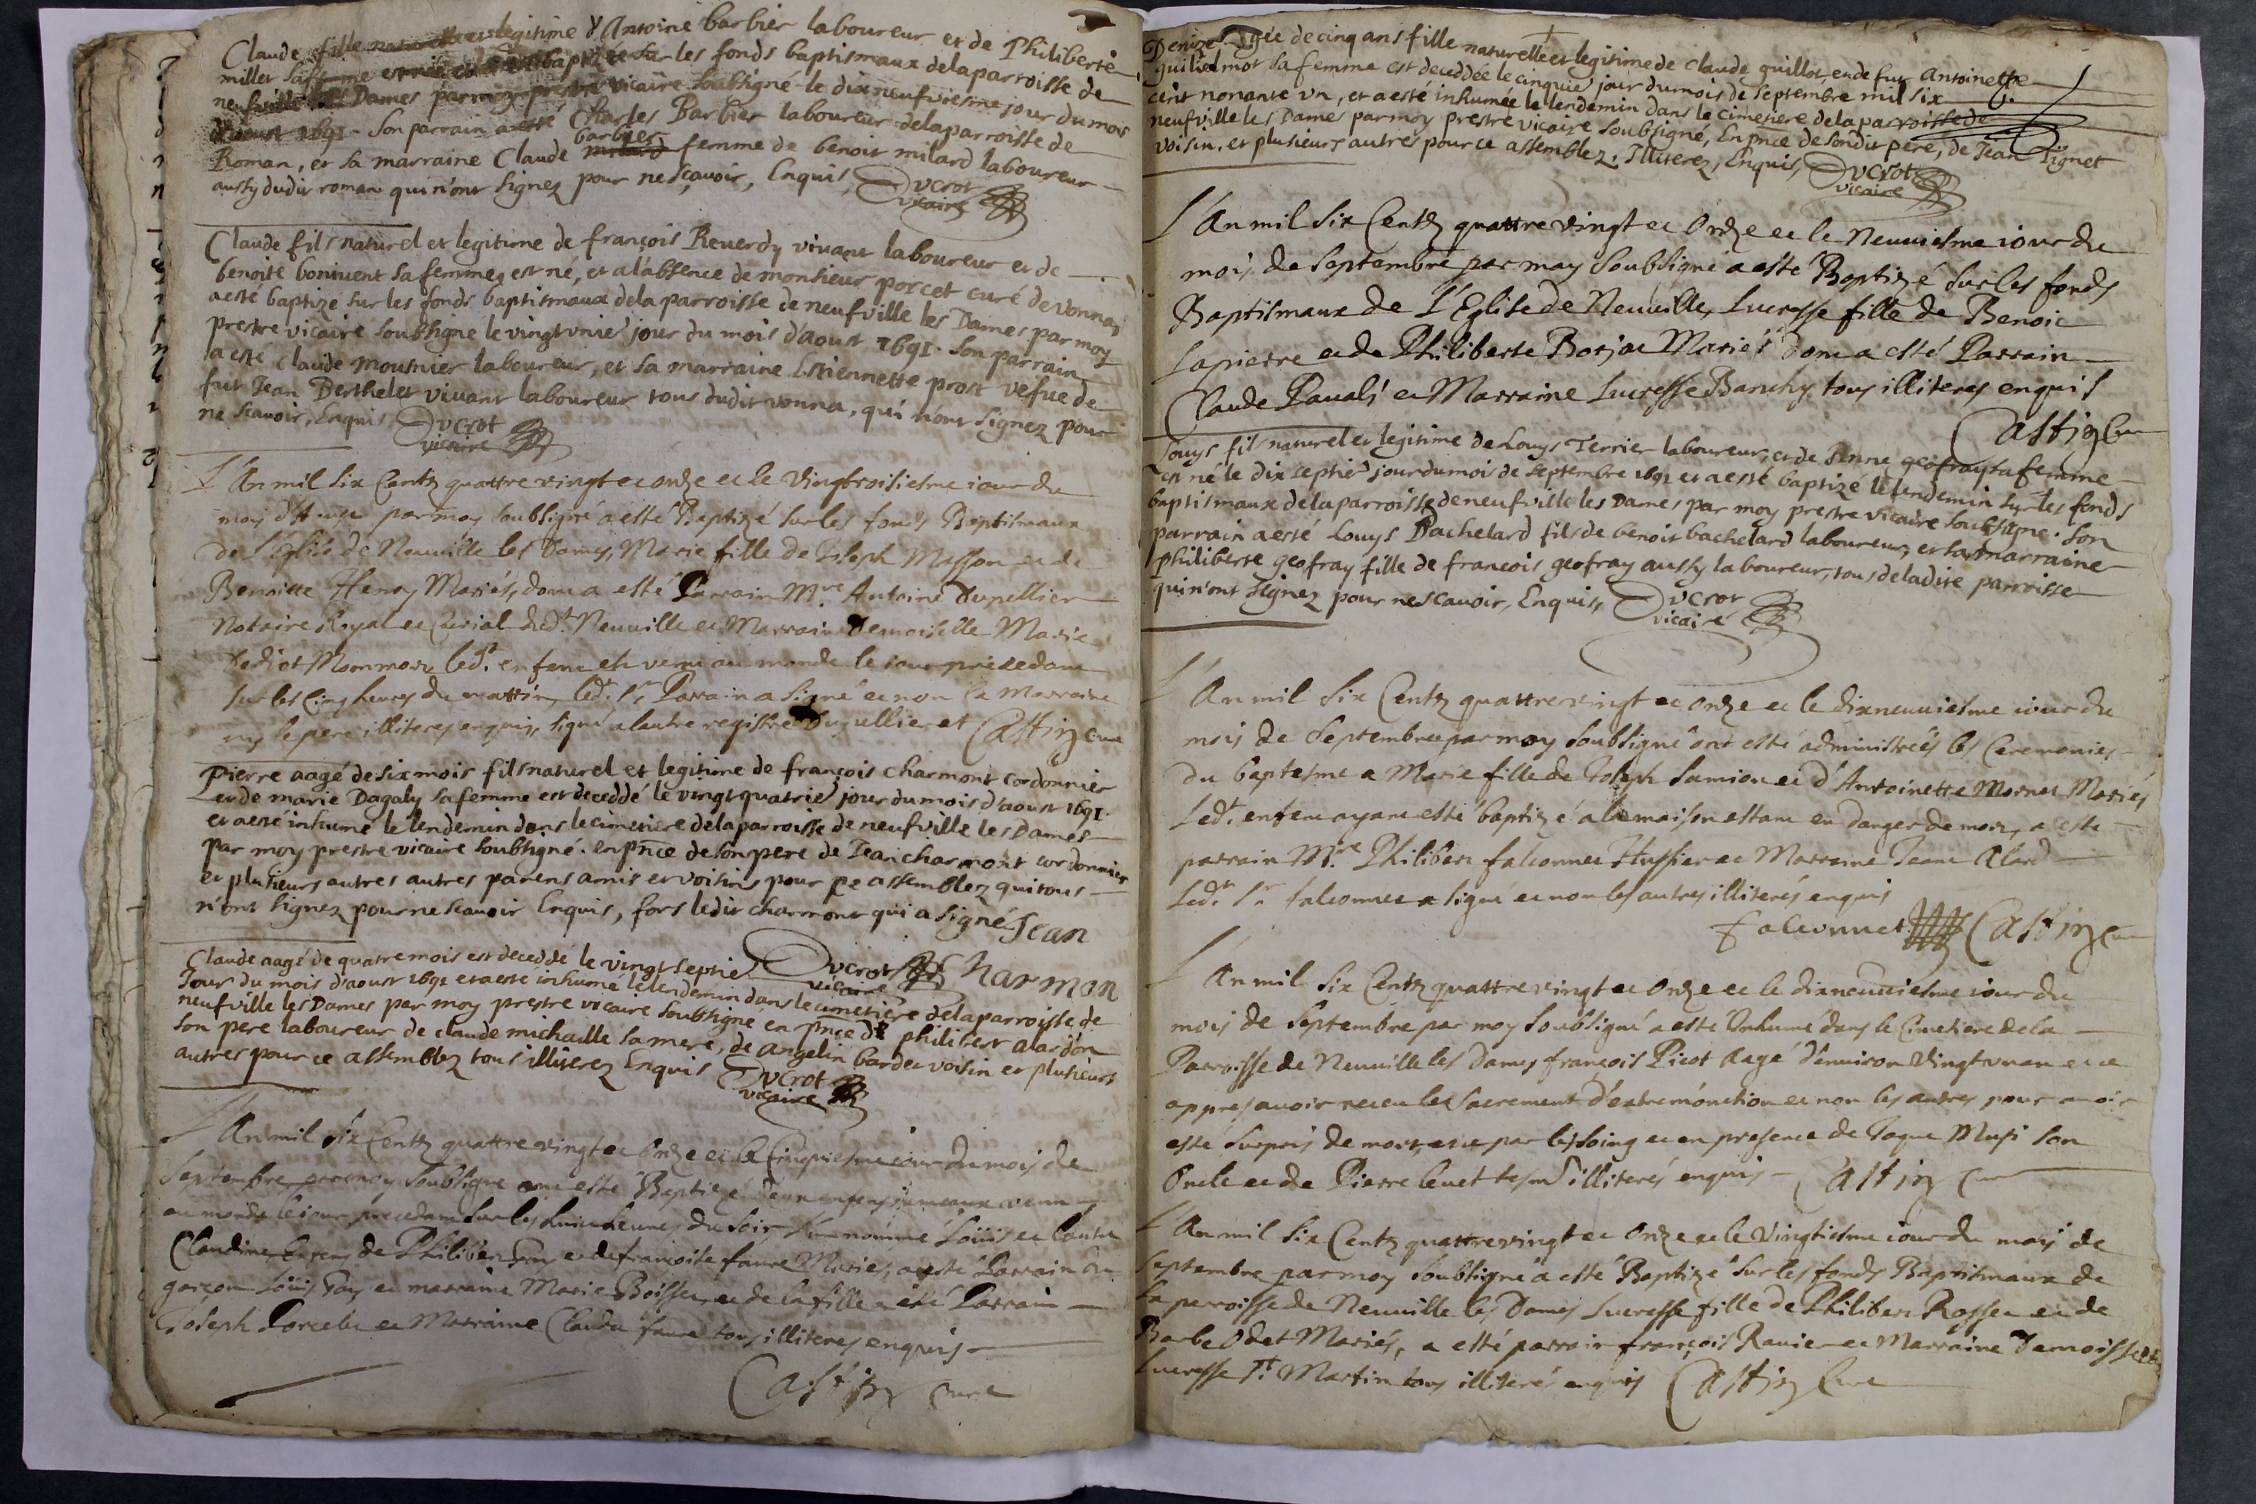 Claude fille naturelle et legitime d'Antoine barbier laboureur et de Philiberte
millet sa femme est née et baptizée sur les fonds baptismaux de la parroisse de
neufville les Dames par moy prestre vicaire soubsigné le dixneufviesme jour du mois
d'aoust 1691. Son parrain a esté Charles Barbier laboureur de la parroisse de
barbier
Roman, et sa marraine Claude milard femme de benoit milard laboureur
aussy dudit roman qui n'ont signez pour ne sçavoir, Enquis, Ducrot
vicaire
Claude fils naturel et legitime de françois Reverdy vivant laboureur et de
benoite bonivent sa femme, est né, et a l'absence de monsieur porcet curé de vonnas
a esté baptizé sur les fonds baptismaux de la parroisse de neufville les Dames par moy
prestre vicaire soubsigné le vingt unie jour du mois d'aoust 1691. Son parrain
a esté claude mousnier laboureur, et sa marraine Estiennette prost vefue de
fut Jean Berthelet vivant laboureur tous dudit vonna, qui n'ont signez pour
ne sçavoir, Enquis Ducrot
vicaire
L'An mil six Centz quattre vingt et onze et le Vingtroisiesme iour du
mois d'Aoust par moy soubsigné a esté Baptizé sur les fonds Baptismaux
de l'Eglise de Neuuille les Dames, Marie fille de Joseph Masson et de
Benoitte Henry Mariés, dont a esté Parrain Mre Antoine Dupellier
Notaire Royal et Curial dudt Neuuille et Marraine Demoiselle Marie
ledt enfent est venu au monde le iour precedant
sur les cinq heures du mattin, ledt sr Parrain a signé et non la Marraine
ny le pere illiteres enquis, signé a lautre registre Dupellier et Castin Curé
Pierre aagé de six mois fils naturel et legitime de françois charmont cordonnier
et de marie Dagaly sa femme est deceddé le vingt quatrie jour du mois d'aoust 1691.
et a esté inhumé le lendemin dans le cimetiere de la parroisse de neufville les Dames
par moy prestre vicaire soubsigné. en pnce de son pere de Jean charmont cordonnier
et plusieurs autres autres parens amis et voisins pour ce assemblez qui tous
n'ont signez pour ne sçavoir Enquis, fors ledit charmont qui a signé Jean
Charmon
Claude aagé de quatre mois est deceddé le vingt septie Ducrot
vicaire
Jour du mois d'aoust 1691 et a esté inhumé le lendemin dans le cimetiere de la parroisse de
neufville les Dames par moy prestre vicaire soubsigné en pnce de philibert alardon
son pere laboureur de claude michaille sa mere, de angelin bardet voisin et plusieurs
autres pour ce assemblez tous illiterez Enquis Ducrot
vicaire
L'An mil six Centz quattre vingt et onze et le Cinquiesme iour du mois de
Septembre par moy soubsigné ont esté Baptizé deux enfens jumeaux venu
au monde le iour precedant sur les huict heures du soir, l'un nommé Loüis et l'autre
Claudine, Enfens de Philibert et de françoise faure Mariés, a esté Parrain du
garçon Loüis et marraine Marie Boisson, et de la fille a esté Parrain
Joseph Porcelet et Marraine Claudu faure tous illiteres enquis
Castin Curé
Denize agée de cinq ans fille naturelle et legitime de claude guillot, et de fut Antoinette
guillelmot sa femme est deceddée le cinquie jour du mois de septembre mil six
cent nonante un, et a esté inhumée le lendemin dans le cimetiere de la parroisse de
neufville les Dames par moy prestre vicaire soubsigné, En pnce de sondit pere, de Jean Tignet
voisin, et plusieurs autres pour ce assemblez, Illiterez, Enquis, Ducrot
vicaire
L'An mil six Centz quattre vingt et Onze et le Neuuiesme iour du
mois de Septembre par moy soubsigné a esté Baptizé sur les fonds
Baptismaux de L'Eglise de Neuuille, Lucresse fille de Benoit
Lapierre et de Philiberte Borjat Mariés dont a esté Parrain
Claude Pauali et Marraine Lucresse Banchy, tous illiteres enquis
Castin Curé
Louys fils naturel et legitime de Louys Terrier laboureur, et de Anne geofray sa femme
est né le dix septie jour du mois de septembre 1691 et a esté baptizé le lendemin sur les fonds
baptismaux de la parroisse de neufville les Dames par moy prestre vicaire soubsigné. Son
parrain a esté Louys Bachelard fils de benoit bachelard laboureur, et sa marraine
philiberte geofray fille de francois geofray aussy laboureur, tous de ladite parroisse
qui n'ont signez pour ne sçavoir, Enquis, Ducrot
vicaire
L'An mil six Centz quattre vingt et onze et le dixneuuiesme iour du
mois de Septembre par moy soubsigné ont esté administreés les Ceremonies
du baptesme a Marie fille de Joseph Samion et d'Antoinette Mornet Mariés
Ledt enfent ayant esté baptizé a la maison estant en danger de mort, a esté
parrain Mre Philibert falconnet Hussier et Marraine Jeane Alard
Ledt sr falconnet a signé et non les autres illiterés enquis
Falconnet Castin Curé
L'An mil six Centz quattre vingt et Onze et le dixneuuiesme iour du
mois de Septembre par moy soubsigné a esté Inhumé dans le Cimetiere de la
Parroisse de Neuuille les Dames françois Picot Aagé d'enuiron Vingt un an et ce
appres auoir receu le sacrement d'extremonction et non les autres pour auoir
esté surpris de mort, et ce par les soing et en presence de Jaque Musi son
Oncle et de Pierre leuet tesms illiterés enquis Castin Curé
L'An mil six Centz quattre vingt et Onze et le Vingtiesme iour du mois de
Septembre par moy soubsigné a esté Baptizé sur les fonds Baptismaux de
la parroisse de Neuuille les Dames Lucresse fille de Philibert Rosset et de
Barbe Odet Mariés, a esté parrain françois Rauier et Marraine Damoisselle
Lucresse St Martin tous illiterés enquis Castin Curé